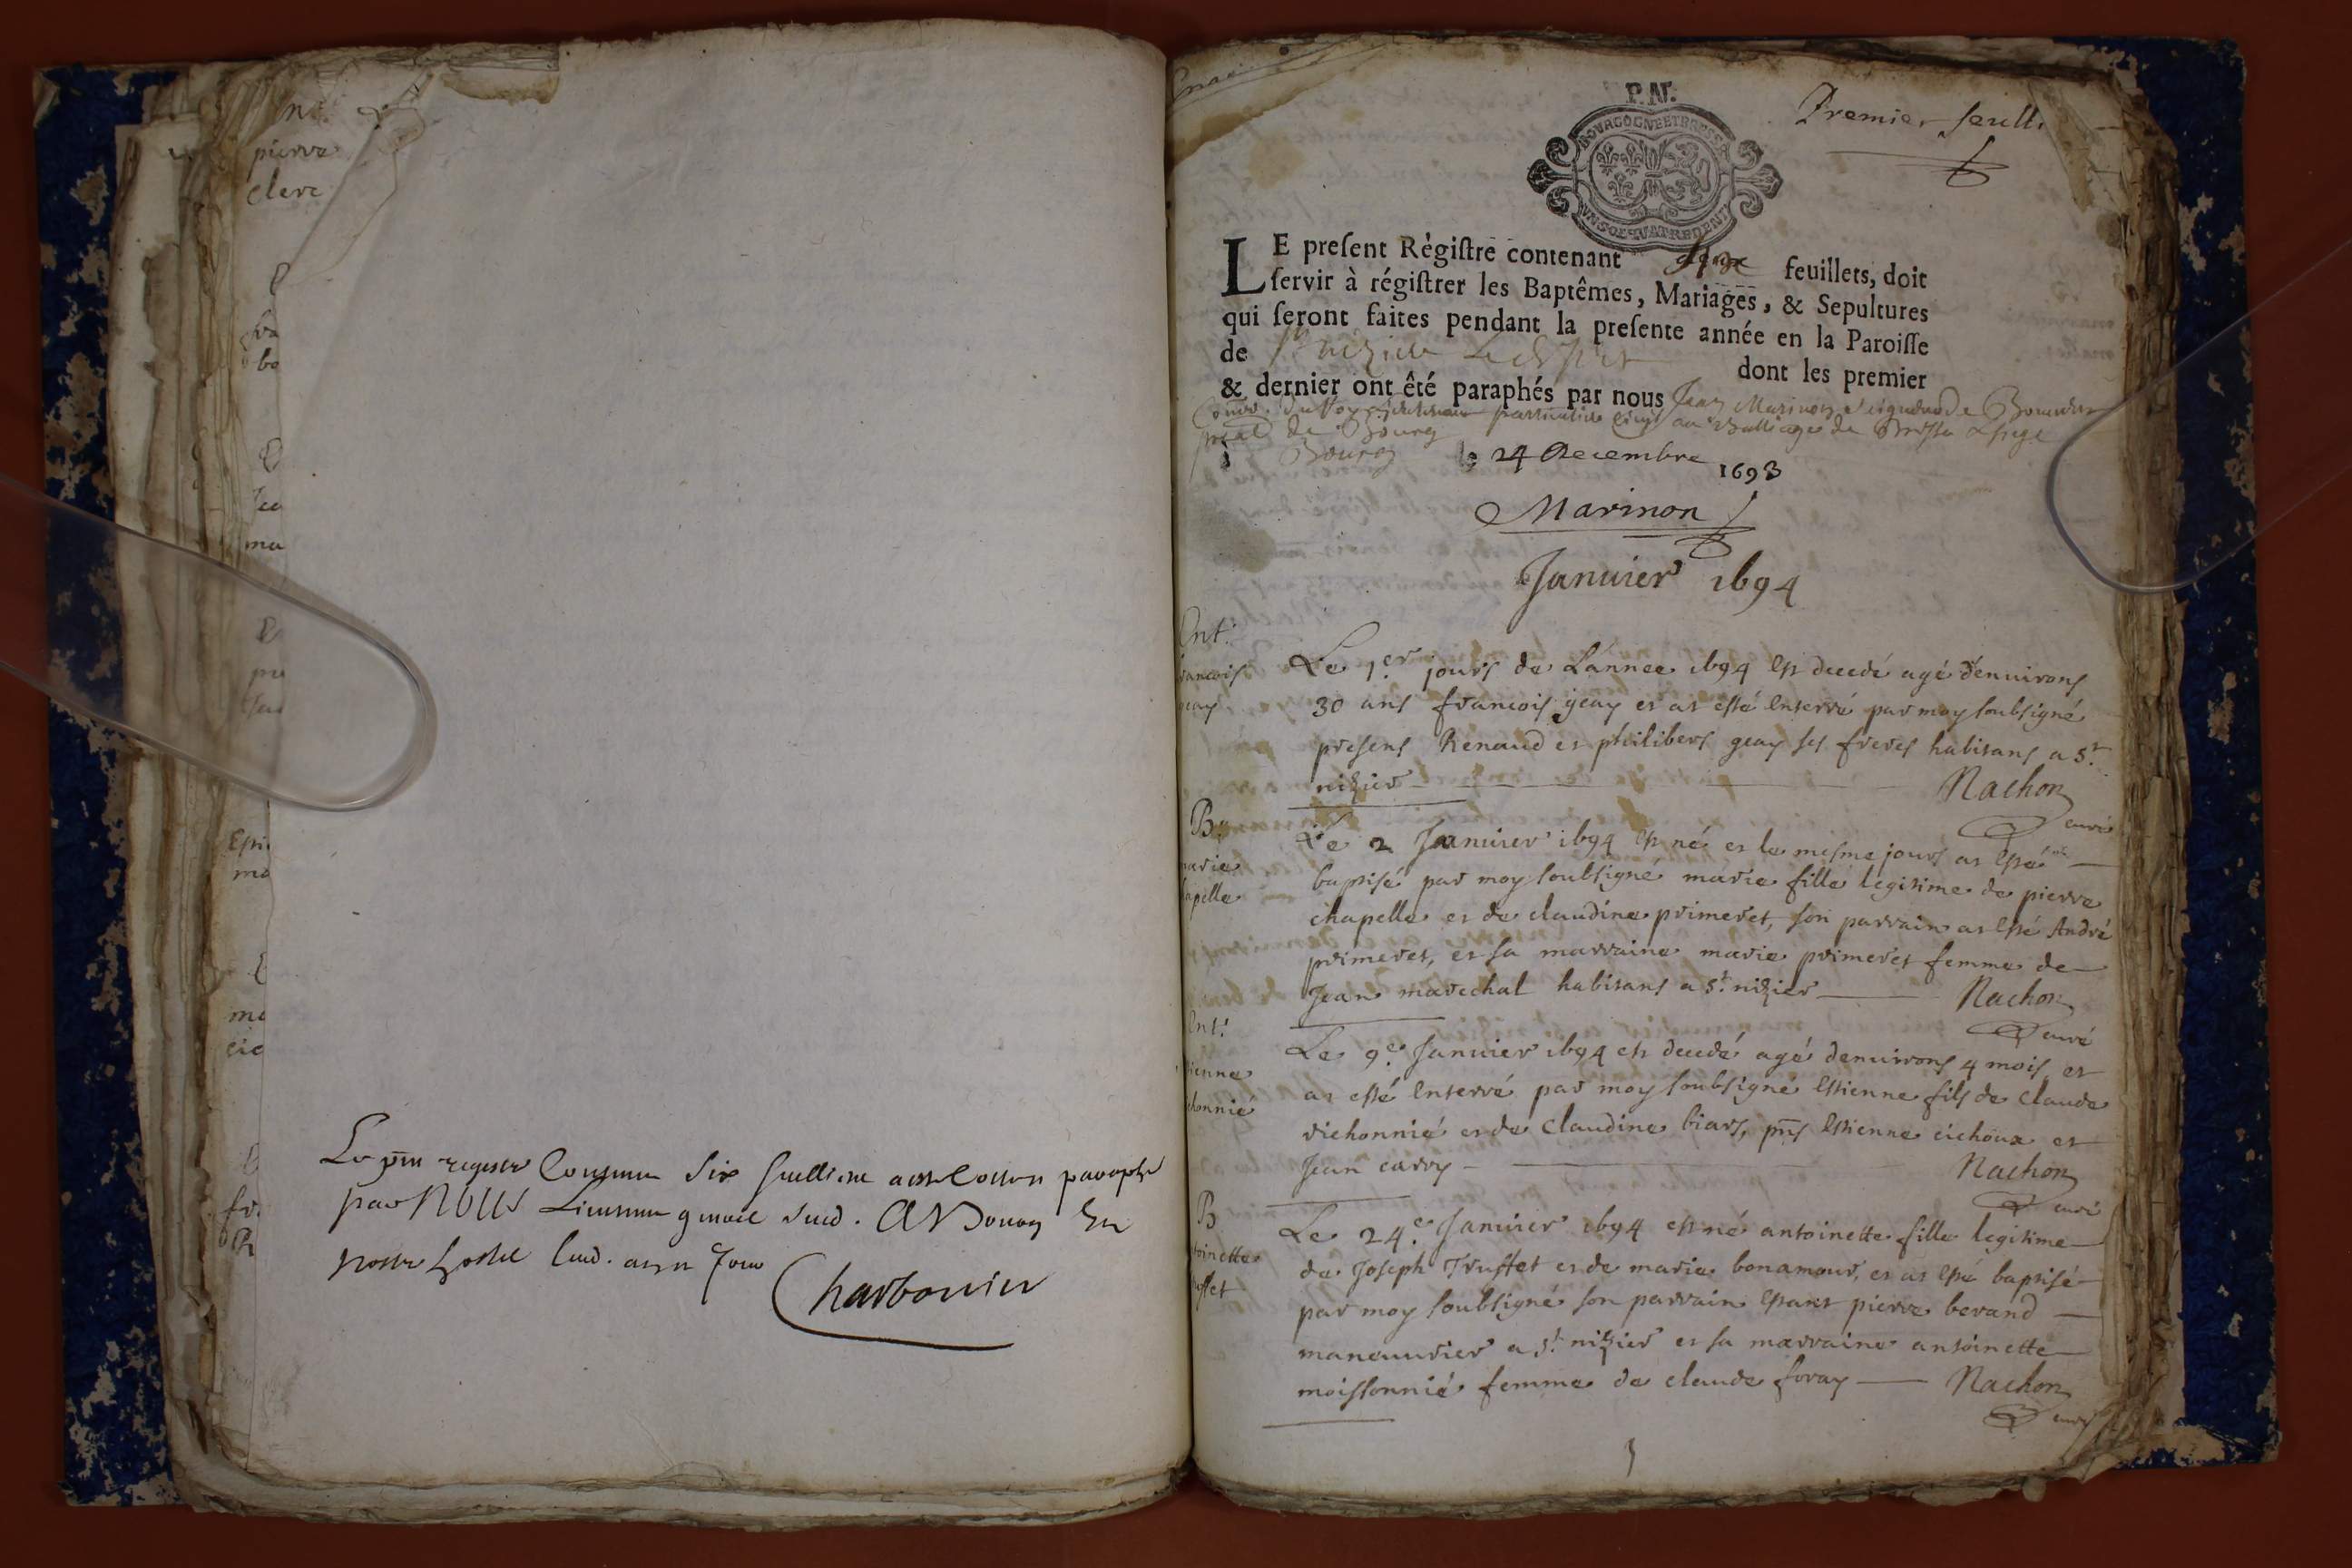 pierre
clerc
Le pnt registre Contenant Six feuillets a esté Cotté et paraphé
par NOUS Lieutenant gnral susd. A Bourg En
nostre hostel lesd. an et Jour
Charbonier
Premier feuill
P. N.
BOURGOGNE ET BRESSE
UN SOL QUATRE DEN
LE present Régistre contenant feuillets, doit
servir à régistrer les Baptêmes, Mariages, & Sepultures
qui seront faites pendant la presente année en la Paroisse
de St nizier Le desert dont les premier
& dernier ont êté paraphés par nous Jean Marinon seigneur de
Conser. du Roy particulier civil au Balliage de Bresse & siege
pnal de Bourg
à Bourg le 24 Decembre 1693
Marinon
Januier 1694
Ent.
rancois
geay
Le 1er jours de L'annee 1694 est decedé agé d'enuirons
30 ans francois geay et at esté Enterré par moy soubsigné
presens Renaud et philibers geay ses freres habitans a St
nizier Nachon
curé
B.
marie
apelle
Le 2 Januier 1694 est né et le mesme jours at esté
baptisé par moy soubsigné marie fille legitime de pierre
chapelle et de claudine primeret, son parrain at esté André
primeret, et sa marraine marie primeret femme de
Jean marechal habitans a St nizier Nachon
curé
Ent.
tienne
chonnié
Le 9e Januier 1694 est decedé agé denuirons 4 mois et
at esté Enterré par moy soubsigné Estienne fils de claude
vichonnié et de claudine biars, pns Estienne cichoux et
Jean carry Nachon
curé
B
toinette
uffet
Le 24e Januier 1694 est né antoinette fille legitime
de Joseph Truffet et de marie bonamour, et at esté baptisé
par moy soubsigné son parrain estant pierre berand
manouurier a St nizier et sa marraine antoinette
moissonnié femme de claude foray Nachon
curé